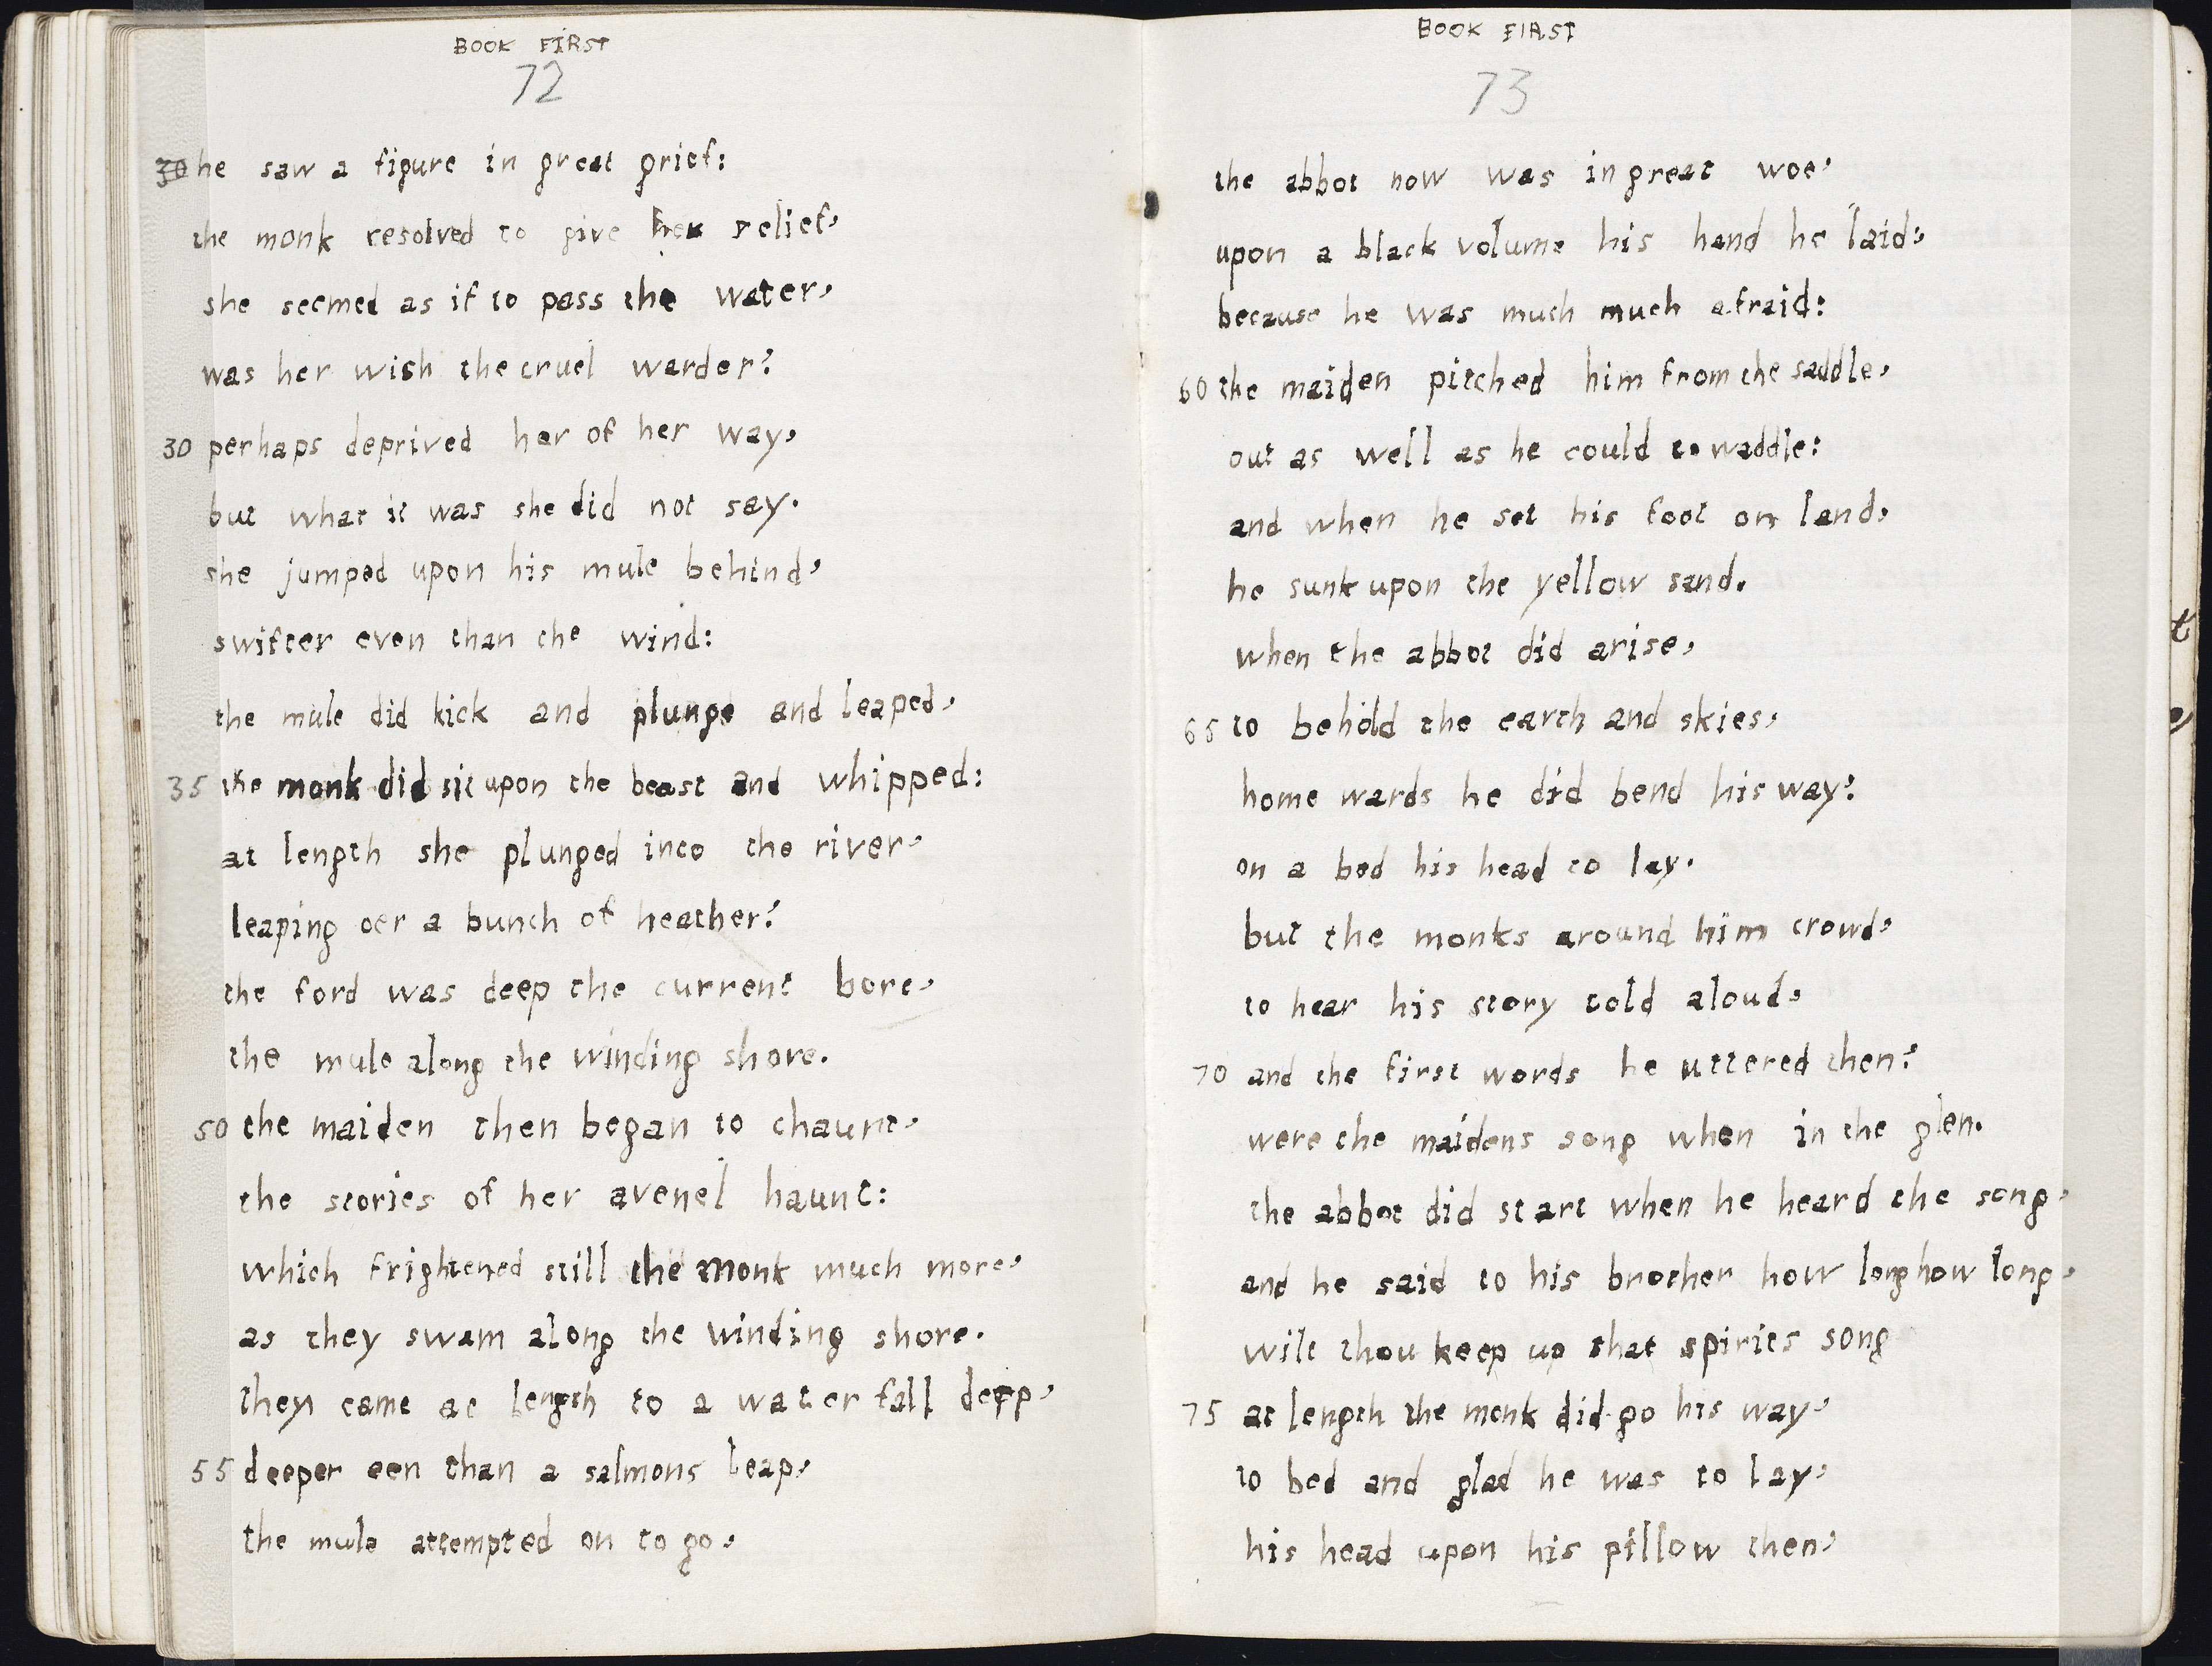 BOOK FIRST
72
30 he saw a figure in great grief:
the monk resolved to give her relief,
she seemed as if to pass the water,
was her wish the cruel warder?
30 perhaps deprived her of her way,
but what it was she did not say.
she jumped upon his mule behind,
swifter even than the wind:
the mule did kick and plunge and leaped,
35 the monk did sit upon the beast and whipped:
at length she plunged into the river,
leaping oer a bunch of heather?
the ford was deep the current bore,
the mule along the winding shore.
50 the maiden then began to chaunt,
the stories of her avenel haunt:
which frightened still the monk much more,
as they swam along the winding shore.
they came at length to a water fall deep,
55 deeper een than a salmons leap,
the mule attempted on to go,
BOOK FIRST
73
the abbot now was in great woe,
upon a black volume his hand he laid;
because he was much much afraid:
60 the maiden pitched him from the saddle,
out as well as he could to waddle:
and when he set his foot on land,
he sunk upon the yellow sand.
when the abbot did arise,
65 to behold the earth and skies,
home wards he did bend his way:
on a bed his head to lay.
but the monks around him crowd,
to hear his story told aloud,
70 and the first words he uttered then?
were the maidens song when in the glen.
the abbot did start when he heard the song,
and he said to his brother how long how long,
wilt thou keep up that spirits song
75 at length the monk did go his way,
to bed and glad he was to lay,
his head upon his pillow then,